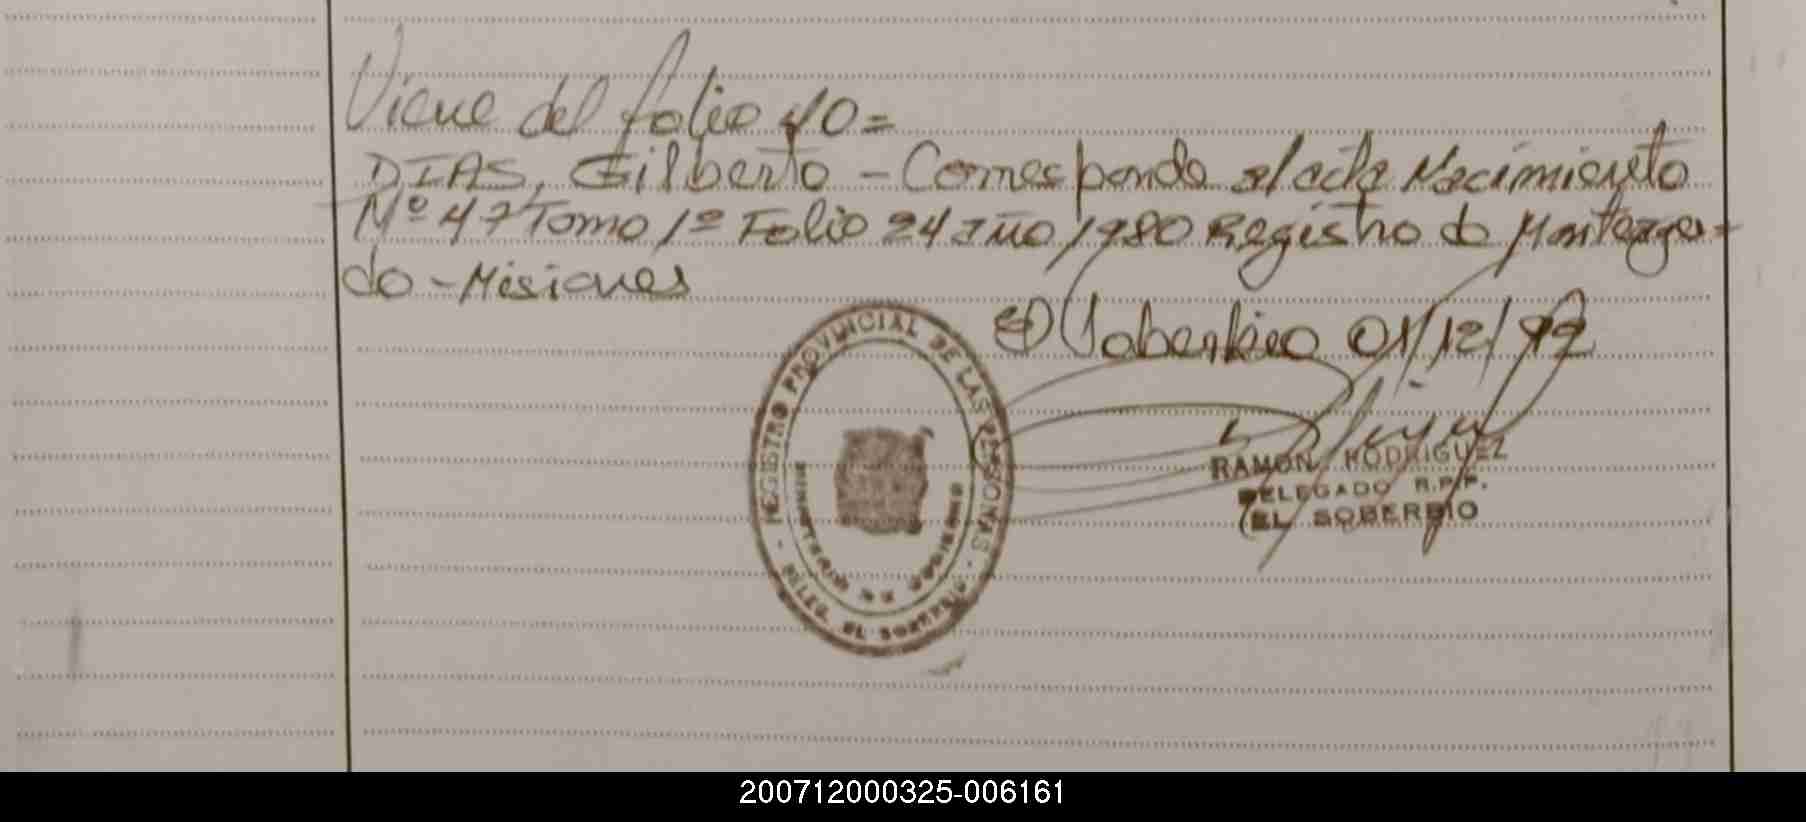 Viene del folio 40=
DIAS, Gilberto - Corresponde al acta Nacimiento
Nº 47 Tomo 1º Folio 24 Año 1980 Registro de Monteagu-
do - Misiones
El Soberbio 01/12/92
REGISTRO PROVINCIAL DE LAS PERSONAS
MINISTERIO DE GOBIERNO
- DELEG. EL SOBERBIO -
RAMON RODRIGUEZ
DELEGADO R.P.P.
EL SOBERBIO
200712000325-006161